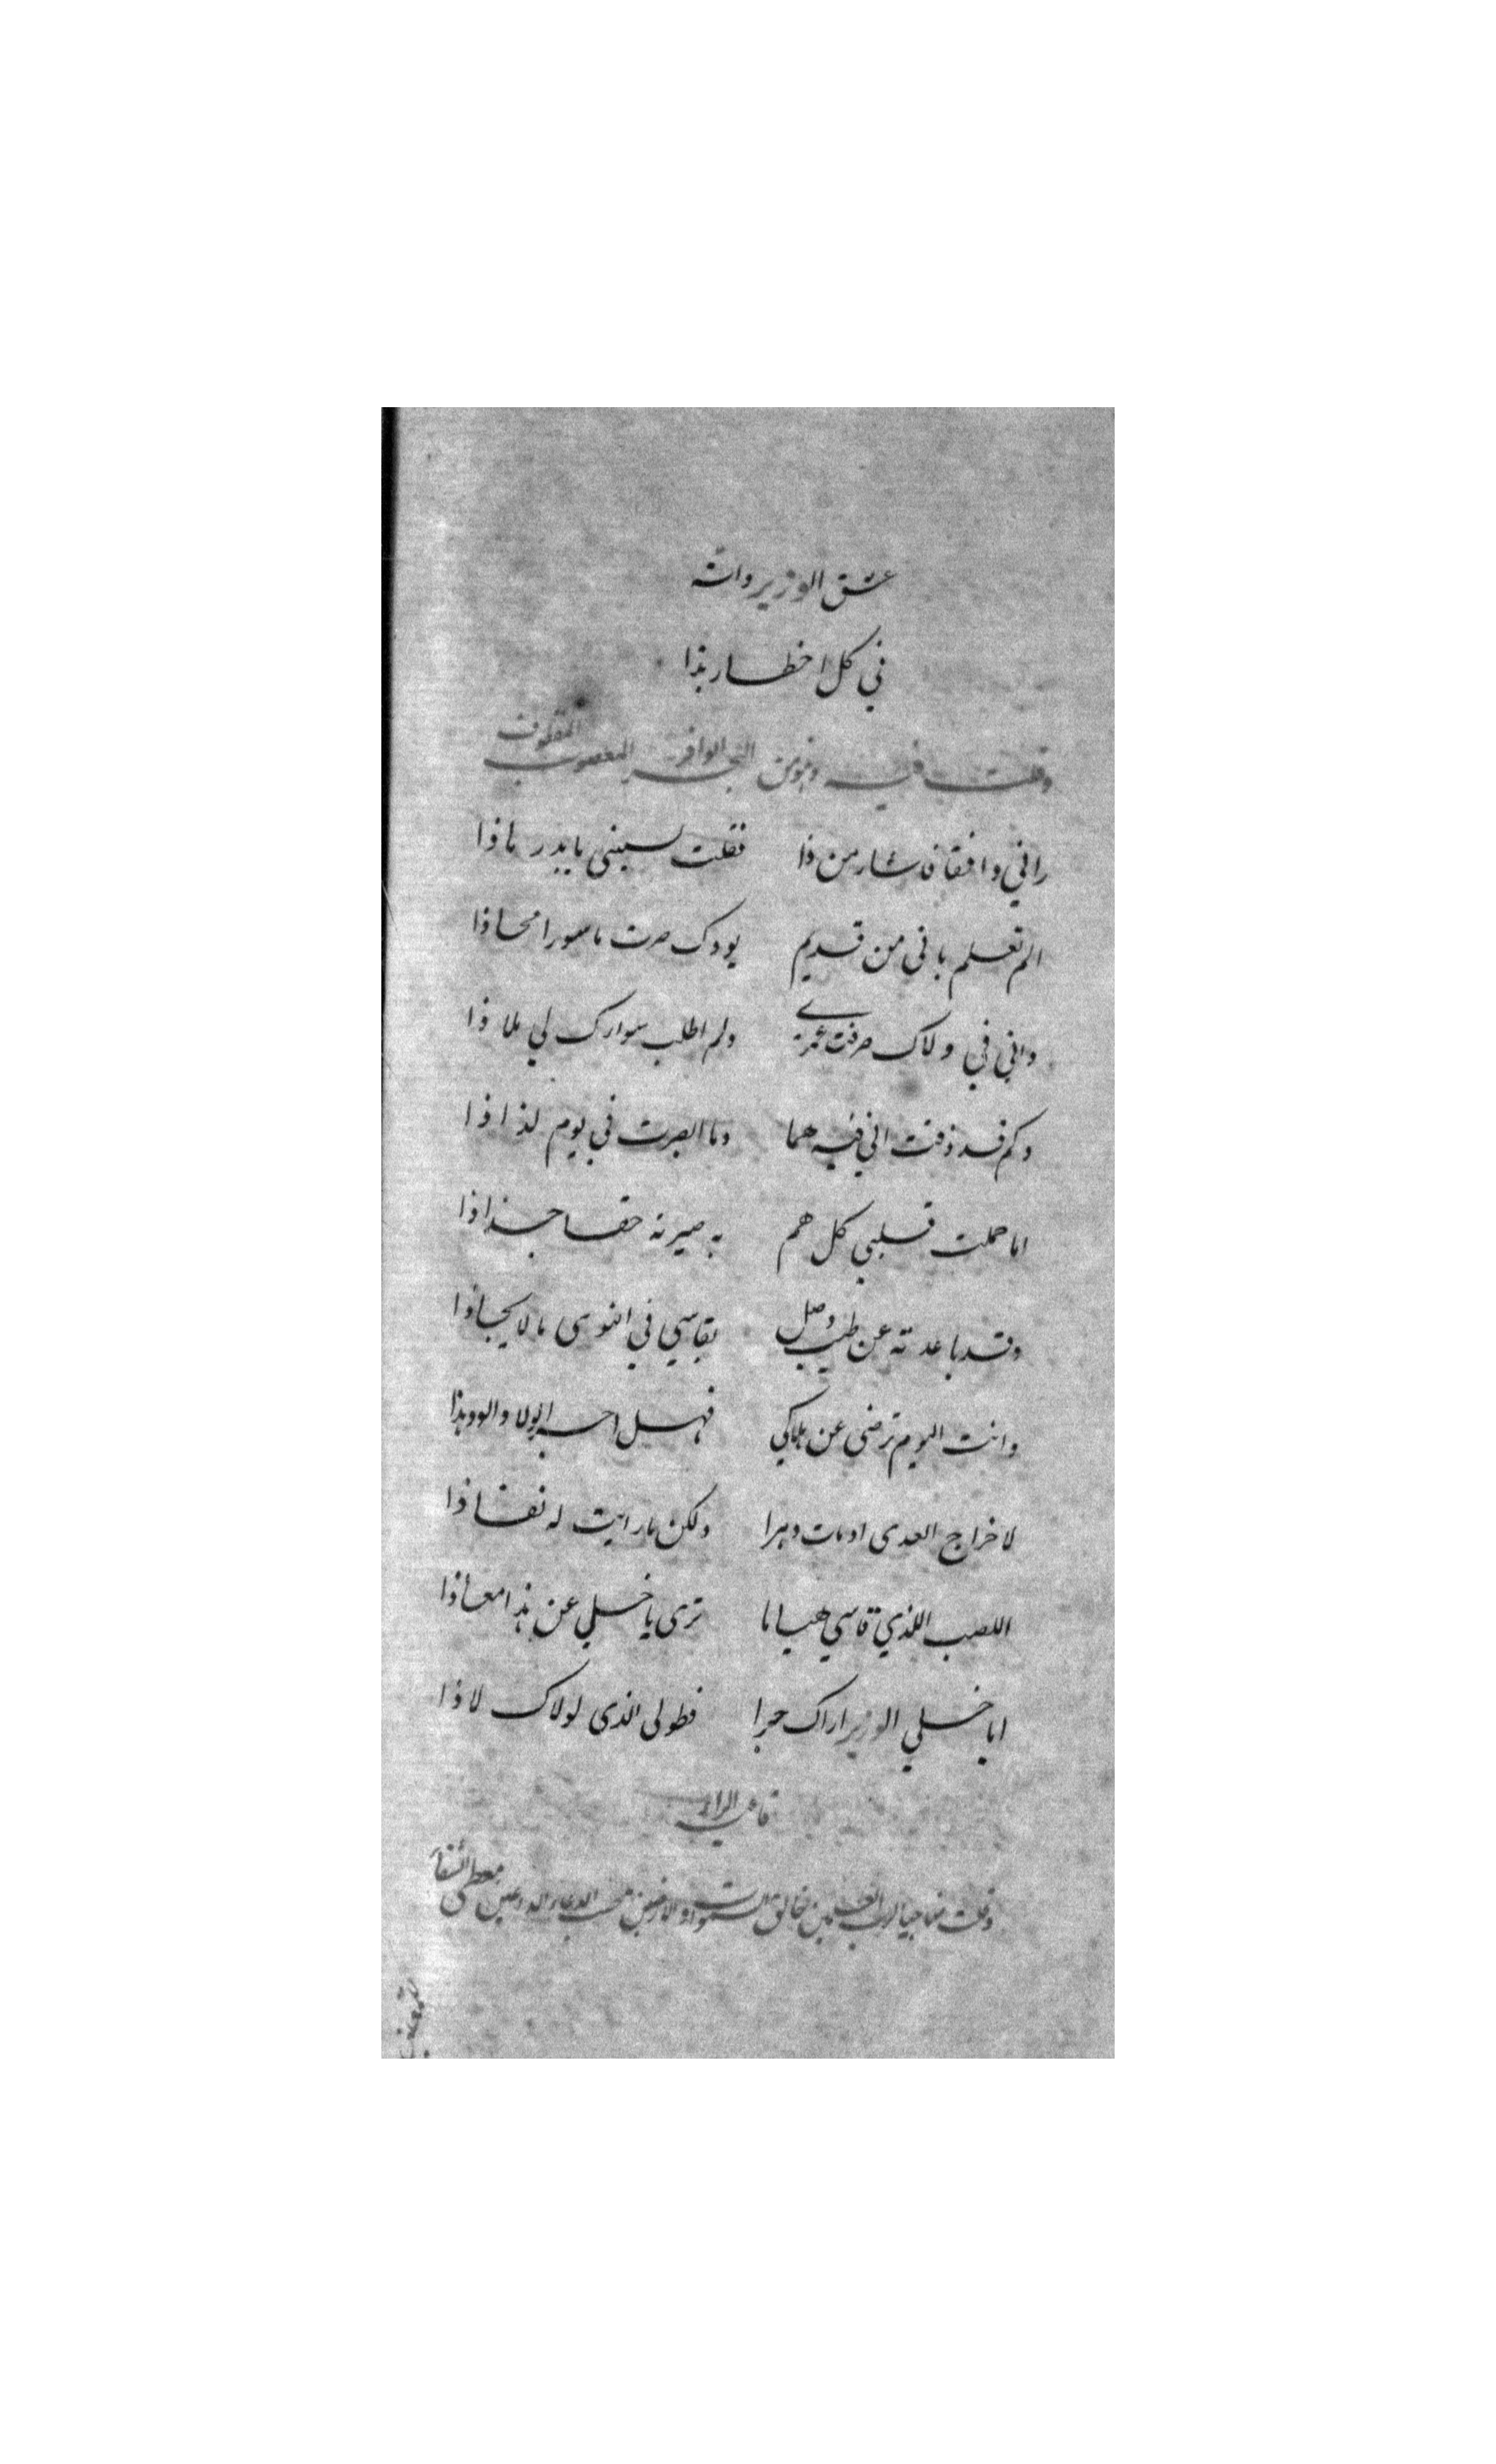 عشق الوزير وانه
في كل اخطار هذا
وقلت فيه وهو من البحر الوافر المعصوب المقطوف
راني واقفا فاشار من ذا فقلت لسيني يا بدر ماذا
الم تعلم باني من قديم بودك صرت ماسورا محاذا
واني في ولاك صرفت عمري ولم اطلب سواك لي ملاذا
وكم قد ذقت اني فيه هما وما ابصرت في يوم لذاذا
اما حملت قلبي كل هم به صيرته حقا جذاذا
وقد باعدته عن طيب وصل يقاسي في النوى ما لا يحاذا
وانت اليوم ترضى عن هلاكي فهل اجر الولا والود هذا
لاخراج العدى اومات دهرا ولكن ما رايت له نفاذا
اللصب اللذي قاسي هياما ترى يا خلي عن هذا معاذا
ايا خلي الوزير اراك حبرا فطولى الذى لولاك لاذا
قافية الراء
وقلت مناجيا لرب العلمين خالق السموات والارضين مجيب الدعاء الداعين معطي الشفا